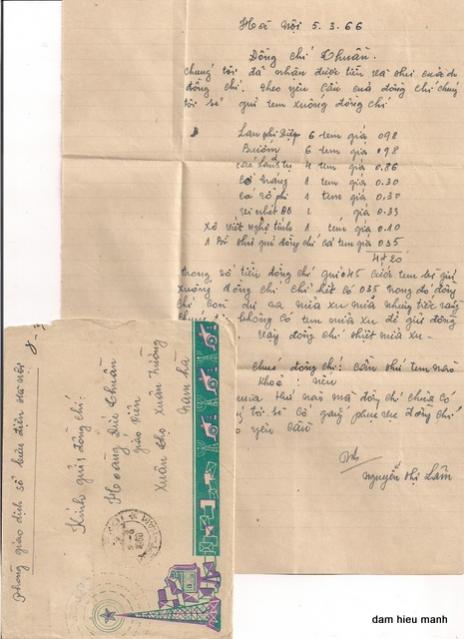 Hà Nội 5.3.66
Đồng chí Thuần.
chúng tôi đã nhận được tiền và thư của
đồng chí. theo yêu cầu của đồng chí chúng
tôi sẽ gửi tem xuống đồng chí
Lan phi Điệp 6 tem giá 098
Bướm 6 tem giá 098
4 tem giá 0.86
1 tem giá 0.30
1 tem giá 0.30
giá 0.33
Xô viết nghệ tĩnh 1 tem giá 0.10
1 thư gửi đồng chí cả tem giá 035
4đ20
trong số tiền đồng chí gửi cước tem để gửi
xuống đồng chí chỉ hết có 035 trong đó đồng
chí còn dư nửa xu nhưng tiếc rằng
không có tem nửa xu để gửi đồng
vậy đồng chí thiệt nửa xu.
chúc đồng chí:
khoẻ: nếu cần thứ tem nào
nữa thứ nào mà đồng chí chưa có
tôi sẽ cố gắng phục vụ đồng chí
yêu cầu
Nguyễn thị Lâm
Phòng giao dịch sở bưu điện Hà nội
Kính gửi, đồng chí.
Hoàng Đức Thuần
giáo viên
Xuân thọ Xuân Trường
Nam hà
dam hieu manh